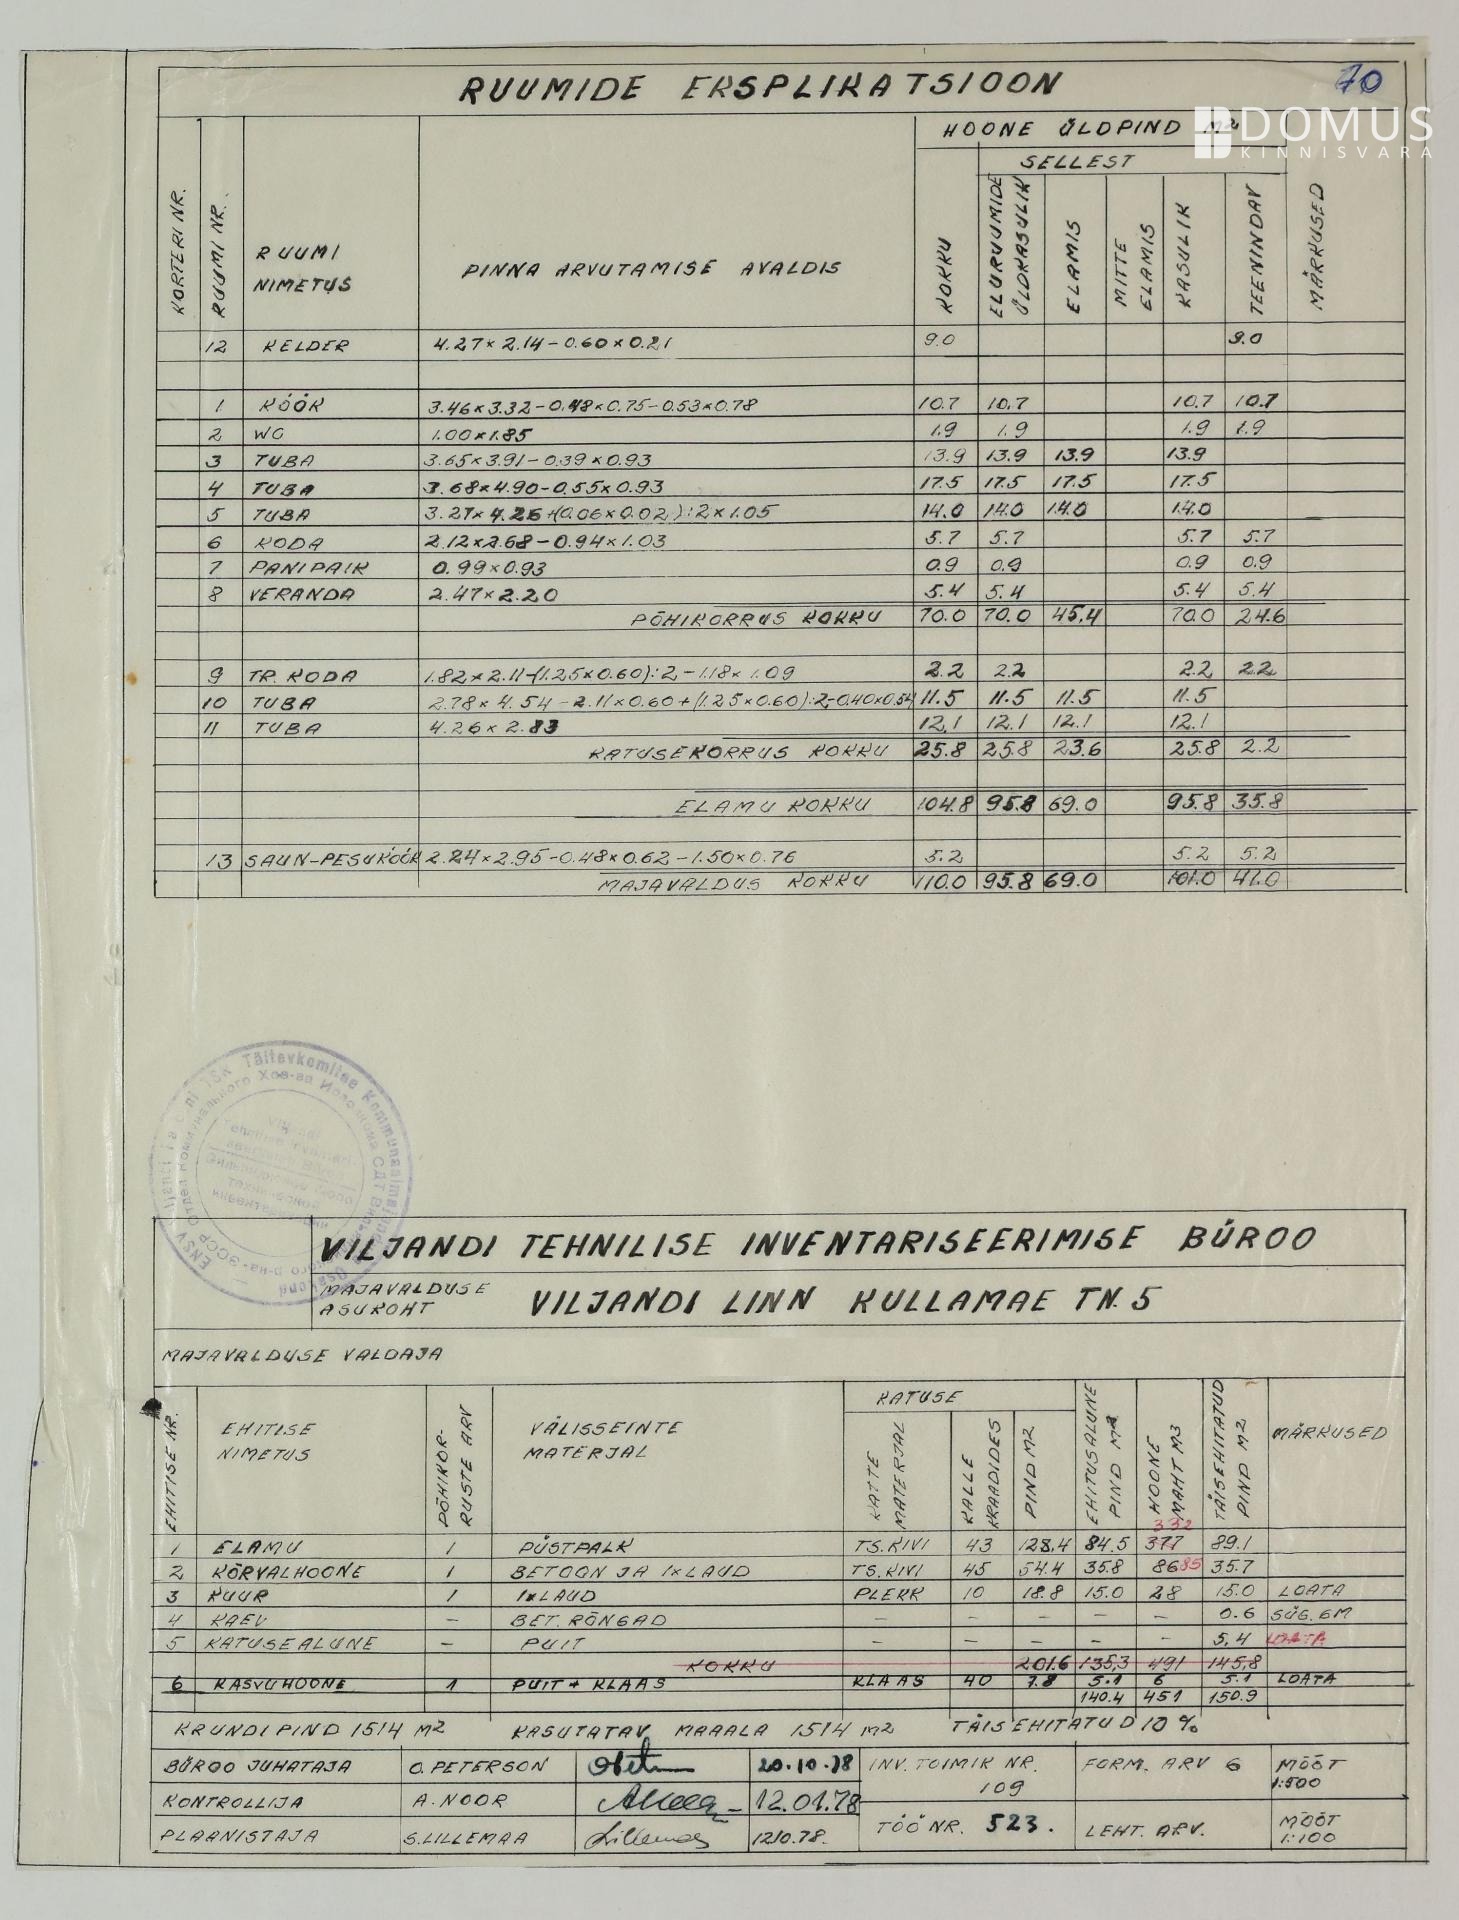 RUUMIDE EKSPLIKATSIOON
70
DOMUS
KINNISVARA
HOONE ÜLDPIND M2
SELLEST
KORTERI NR.
RUUMI NR.
RUUMI
NIMETUS
PINNA ARVUTAMISE AVALDIS
KOKKU
ELURUUMIDE
ÜLDKASULIK
ELAMIS
MITTE
ELAMIS
KASULIK
TEENINDAV
MÄRKUSED
12 KELDER 4.27×2.14-0.60×0.21 9.0 9.0
1 KÖÖK 3.46×3.32-0.48×0.75-0.53×0.78 10.7 10.7 10.7 10.7
2 WC 1.00×1.85 1.9 1.9 1.9 1.9
3 TUBA 3.65×3.91-0.39×0.93 13.9 13.9 13.9 13.9
4 TUBA 3.68×4.90-0.55×0.93 17.5 17.5 17.5 17.5
5 TUBA 3.27×4.26+(0.06×0.02):2×1.05 14.0 14.0 14.0 14.0
6 KODA 2.12×2.68-0.94×1.03 5.7 5.7 5.7 5.7
7 PANIPAIK 0.99×0.93 0.9 0.9 0.9 0.9
8 VERANDA 2.47×2.20 5.4 5.4 5.4 5.4
PÕHIKORRUS KOKKU 70.0 70.0 45.4 70.0 24.6
9 TR. KODA 1.82×2.11-(1.25×0.60):2-1.18×1.09 2.2 2.2 2.2 2.2
10 TUBA 2.78×4.54-2.11×0.60+(1.25×0.60):2-0.40×0.54 11.5 11.5 11.5 11.5
11 TUBA 4.26×2.83 12.1 12.1 12.1 12.1
KATUSEKORRUS KOKKU 25.8 25.8 23.6 25.8 2.2
ELAMU KOKKU 104.8 95.8 69.0 95.8 35.8
13 SAUN-PESUKÖÖK 2.24×2.95-0.48×0.62-1.50×0.76 5.2 5.2 5.2
MAJAVALDUS KOKKU 110.0 95.8 69.0 101.0 41.0
VILJANDI TEHNILISE INVENTARISEERIMISE BÜROO
MAJAVALDUSE
ASUKOHT
VILJANDI LINN KULLAMAE TN. 5
MAJAVALDUSE VALDAJA
EHITISE NR.
EHITISE
NIMETUS
PÕHIKOR-
RUSTE ARV
VÄLISSEINTE
MATERJAL
KATUSE
KATTE
MATERJAL
KALLE
KRAADIDES
PIND M2
EHITUSALUNE
PIND M2
HOONE
MAHT M3
TÄISEHITATUD
PIND M2
MÄRKUSED
332
1 ELAMU 1 PÜSTPALK TS.KIVI 43 128,4 84.5 377 89.1
2 KÕRVALHOONE 1 BETOON JA 1×LAUD TS.KIVI 45 54.4 35.8 86 85 35.7
3 KUUR 1 1×LAUD PLEKK 10 18.8 15.0 28 15.0 LOATA
4 KAEV - BET. RÕNGAD - - - - - 0.6 SÜG. 6M
5 KATUSEALUNE - PUIT - - - - - 5,4 LOATA
KOKKU 201.6 135,3 491 145,8
6 KASVUHOONE 1 PUIT + KLAAS KLAAS 40 7.8 5.1 6 5.1 LOATA
140.4 451 150.9
KRUNDI PIND 1514 M2 KASUTATAV MAAALA 1514 M2 TÄISEHITATUD 10 %
BÜROO JUHATAJA O. PETERSON 20.10.78 INV. TOIMIK NR. FORM. ARV 6 MÕÕT
109 1:500
KONTROLLIJA A. NOOR 12.01.78
TÖÖ NR. 523. LEHT. ARV. MÕÕT
1:100
PLAANISTAJA S. LILLEMAA Lillemaa 12.10.78.